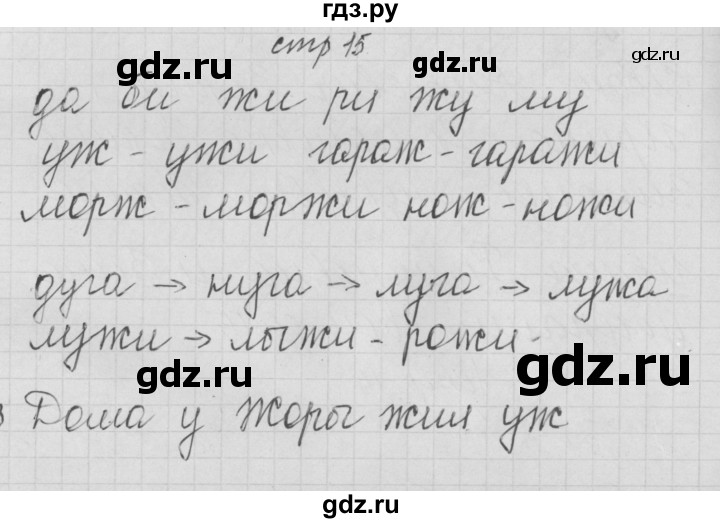 гдз.ру
стр 15
gdz.ru
gdz.ru
gdz.ru
да ви жи ря жу му
уж - ужи гараж - гаражи
морж - моржи нож - ножи
gdz.ru
gdz.ru
дуга → нуга → луга → лужа
лужи → лыжи - рожи -
gdz.ru
gdz.ru
Дома у Жоры жил уж
gdz.ru
gdz.ru
gdz.ru